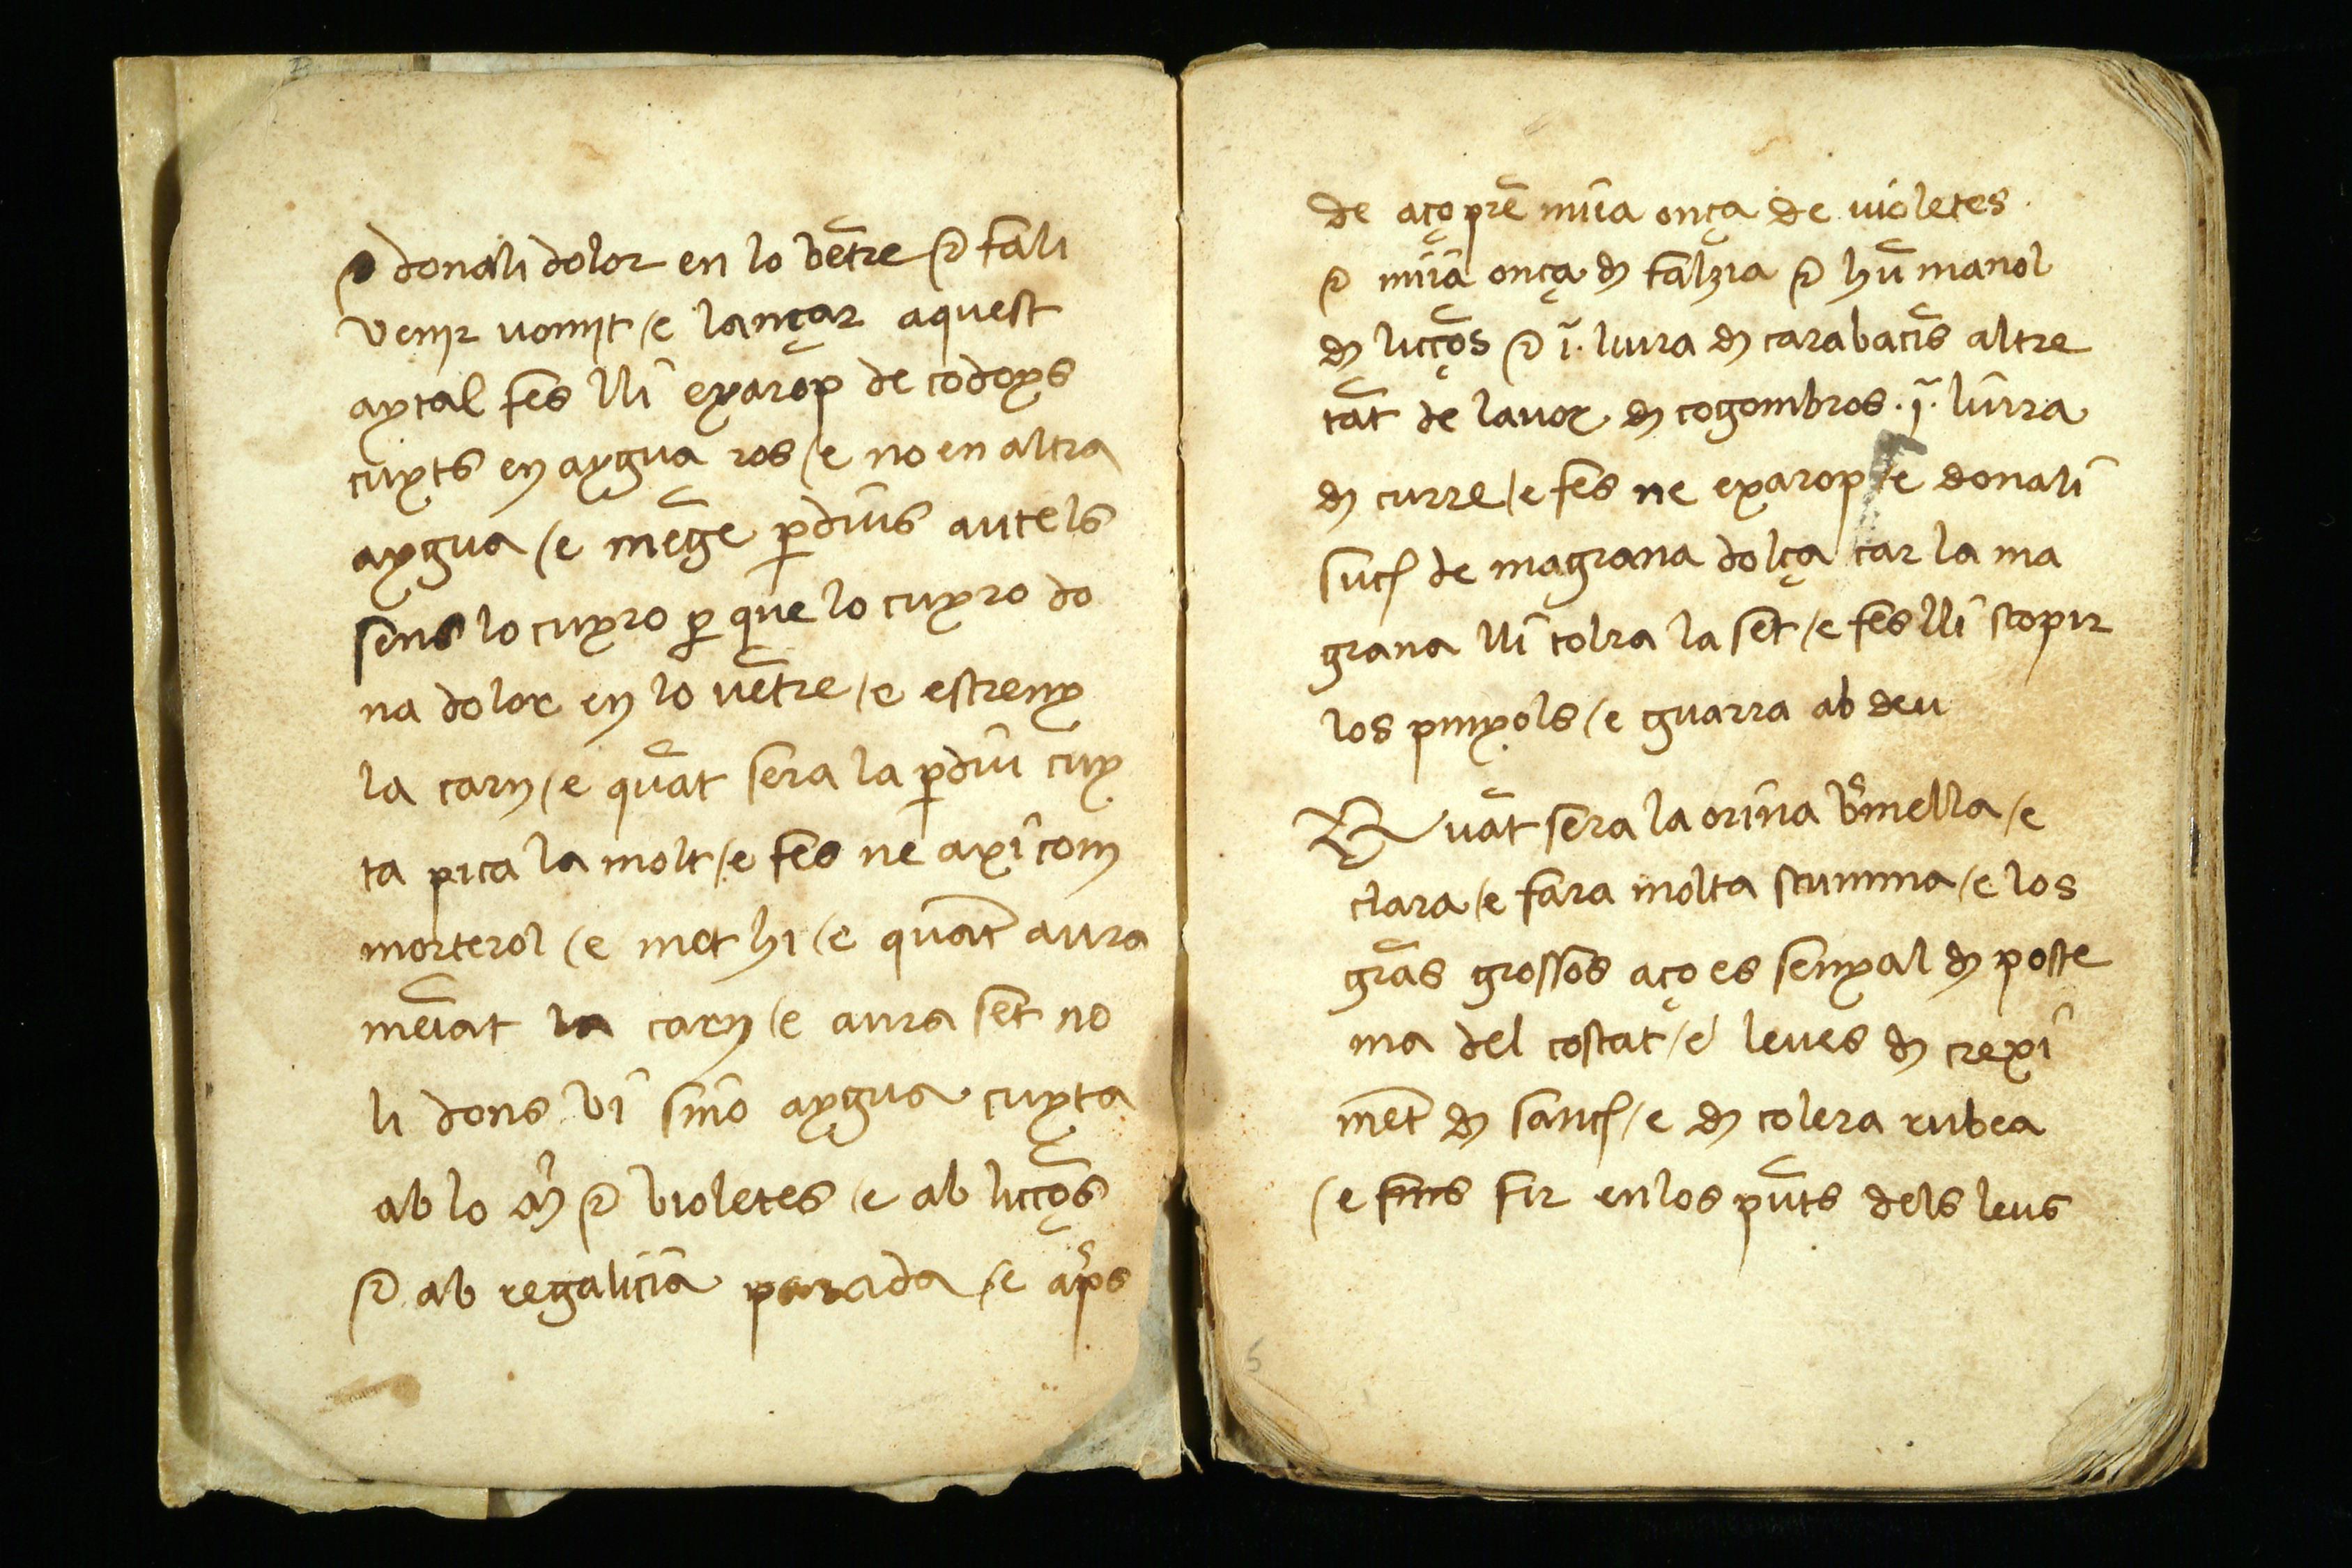 ⁊ donali dolor en lo vẽtre ⁊ fali
venir vomit / e lançar aquest
aytal fes lli exarop de codoys
cuyts en aygua ros / e no en altra
aygua / e mẽge ꝑdius autels
sens lo cuyro ꝑ que lo cuyro do
na dolor en lo vẽtre / e estreny
la carn / e quãt sera la ꝑdiu cuy
ta pica la molt / e fes ne axi com
morterol / e met hi / e quãt aura
mẽiat la carn / e aura set no
li dons vi sino aygua cuyta
ab lo ⁊ violetes / e ab liççõs
⁊ ab regalicia parada / e ap̃s
de aço prẽ miia onça de violetes
⁊ miia onça de falzia ⁊ hũ manol
de liccõs ⁊ .ĩ. liura de carabacis altre
tãt de lauor de cogombros .ĩ. liura
de curre / e fes ne exarop / e donali
such de magrana dolça car la ma
grana lli tolra la set / e fes lli scopir
los pinyols / e guarra ab deu
Quãt sera la orina v̉mella / e
clara / e fara molta scumma / e los
grãs grossos aço es senyal de poste
ma del costat / e leues de crexi
mẽt de sanch / e de colera rubea
/ e fir en los pũts dels leus
5